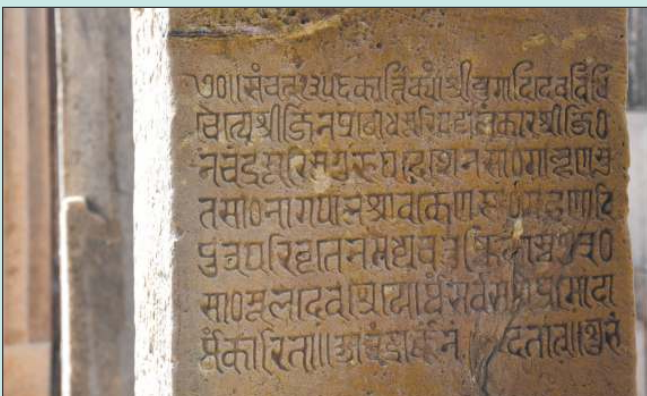 ७०॥ संवत् १३५६ कार्त्तिक्यां श्रीयुगादिदेवविधि
चैत्ये श्रीजिनप्रबोधसूरिपट्टालंकारश्रीजि०
नचंद्रसूरिसुगुरूपदेशेन सा० गाल्हणसु
त सा० नागपालश्रावकेण सा० गहणादि
पुत्रपरिवृतेन मध्यचतुष्किका स्व० पुत्र०
सा० मूलदेव श्रेयोर्थं सर्वसंघप्रमोदा
र्थं कारिता॥ आचंद्रार्कं नंदतात्॥ शुभं